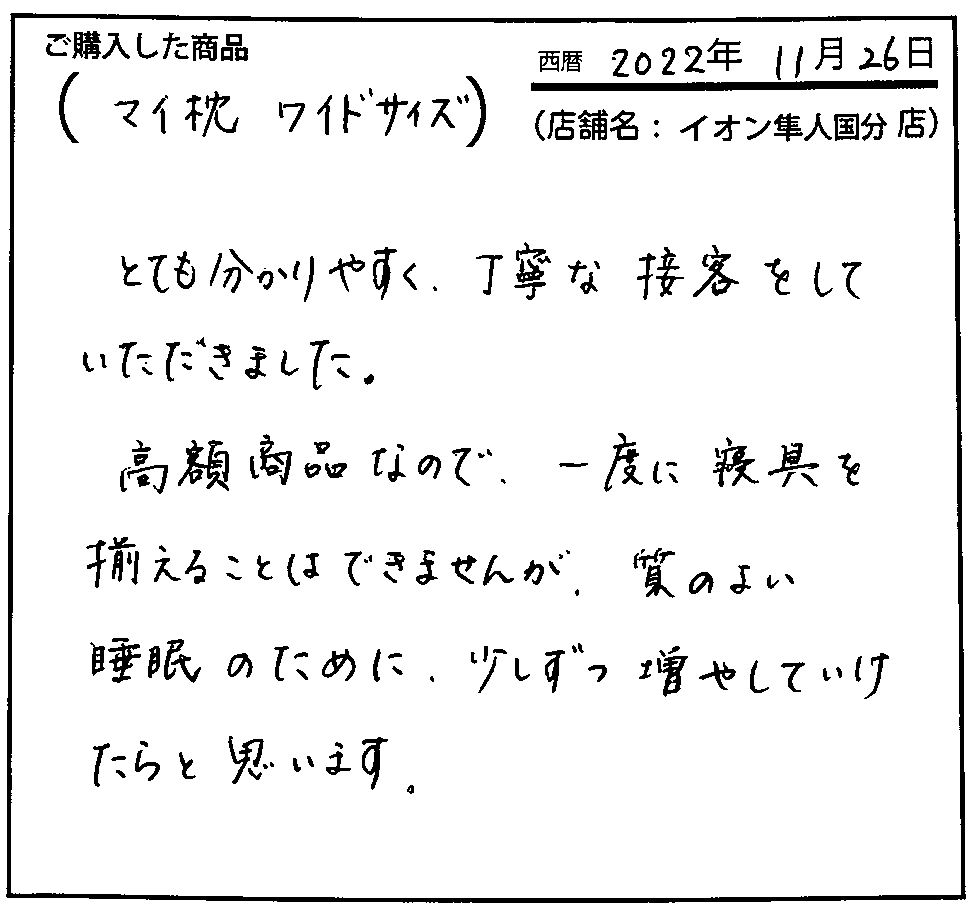 ご購入した商品
(マイ枕 ワイドサイズ)
西暦 2022年 11月26日
(店舗名：イオン隼人国分店)
とても分かりやすく、丁寧な接客をして
いただきました。
高額商品なので、一度に寝具を
揃えることはできませんが、質のよい
睡眠のために、少しずつ増やしていけ
たらと思います。